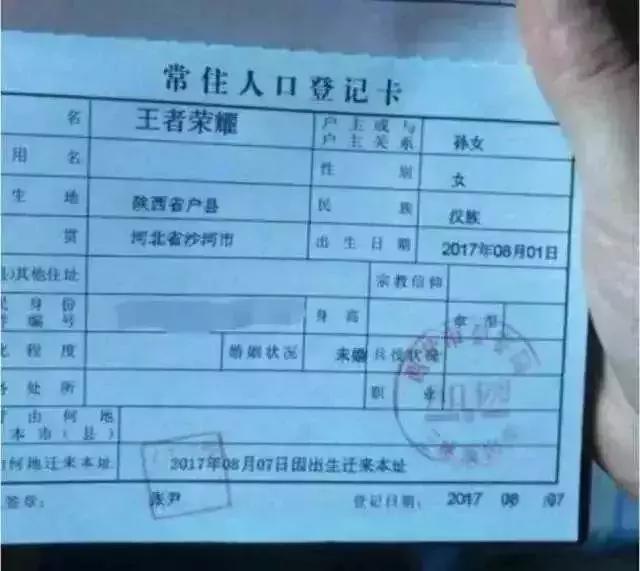 常住人口登记卡
名 王者荣耀 户主或与户主关系 孙女
用名 性别 女
生地 陕西省户县 民族 汉族
贯 河北省沙河市 出生日期 2017年08月01日
县)其他住址 宗教信仰
民身份
件编号 身高 血型
化程度 婚姻状况 未婚 兵役状况
务处所 职业
由何地
本市(县)
何地迁来本址 2017年08月07日因出生迁来本址
签章: 张尹 登记日期: 2017 08 07